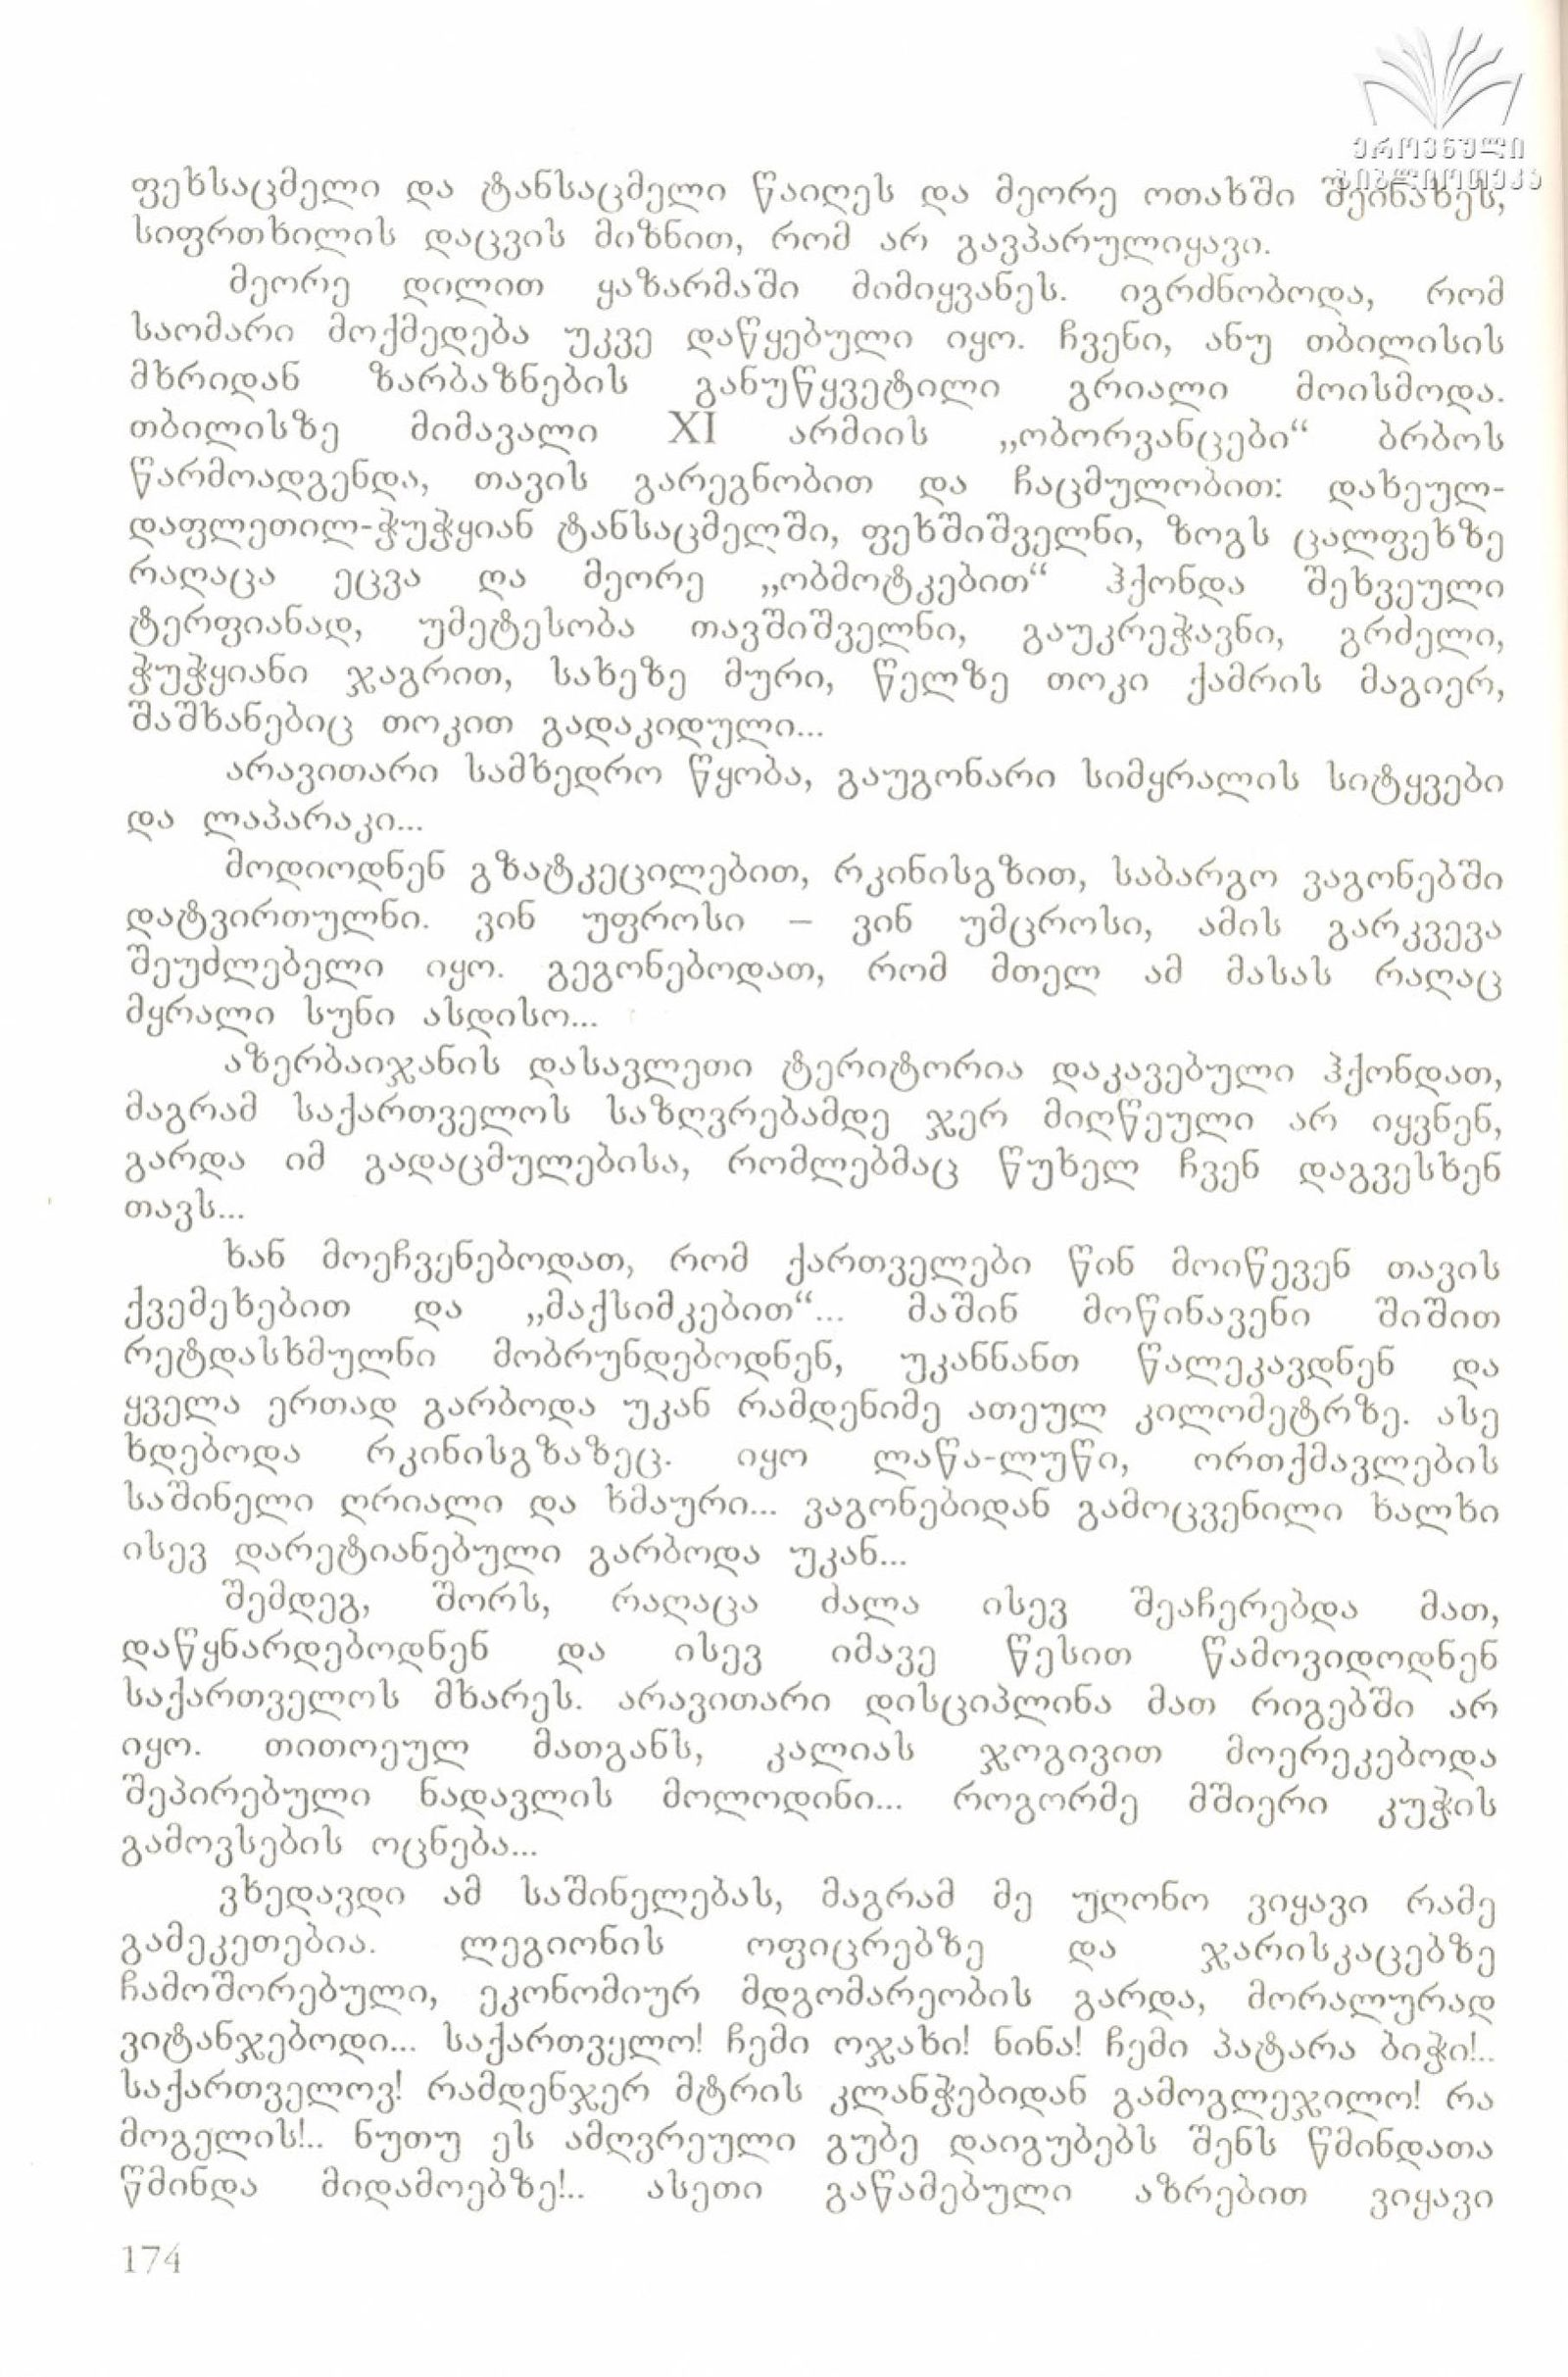 ეროვნული
ბიბლიოთეკა
ფეხსაცმელი და ტანსაცმელი წაიღეს და მეორე ოთახში შეინახეს,
სიფრთხილის დაცვის მიზნით, რომ არ გავპარულიყავი.
მეორე დილით ყაზარმაში მიმიყვანეს. იგრძნობოდა, რომ
საომარი მოქმედება უკვე დაწყებული იყო. ჩვენი, ანუ თბილისის
მხრიდან ზარბაზნების განუწყვეტილი გრიალი მოისმოდა.
თბილისზე მიმავალი XI არმიის „ობორვანცები“ ბრბოს
წარმოადგენდა, თავის გარეგნობით და ჩაცმულობით: დახეულ-
დაფლეთილ-ჭუჭყიან ტანსაცმელში, ფეხშიშველნი, ზოგს ცალფეხზე
რაღაცა ეცვა ღა მეორე „ობმოტკებით“ ჰქონდა შეხვეული
ტერფიანად, უმეტესობა თავშიშველნი, გაუკრეჭავნი, გრძელი,
ჭუჭყიანი ჯაგრით, სახეზე მური, წელზე თოკი ქამრის მაგიერ,
შაშხანებიც თოკით გადაკიდული...
არავითარი სამხედრო წყობა, გაუგონარი სიმყრალის სიტყვები
და ლაპარაკი...
მოდიოდნენ გზატკეცილებით, რკინისგზით, საბარგო ვაგონებში
დატვირთულნი. ვინ უფროსი – ვინ უმცროსი, ამის გარკვევა
შეუძლებელი იყო. გეგონებოდათ, რომ მთელ ამ მასას რაღაც
მყრალი სუნი ასდისო...
აზერბაიჯანის დასავლეთი ტერიტორია დაკავებული ჰქონდათ,
მაგრამ საქართველოს საზღვრებამდე ჯერ მიღწეული არ იყვნენ,
გარდა იმ გადაცმულებისა, რომლებმაც წუხელ ჩვენ დაგვესხენ
თავს...
ხან მოეჩვენებოდათ, რომ ქართველები წინ მოიწევენ თავის
ქვემეხებით და „მაქსიმკებით“... მაშინ მოწინავენი შიშით
რეტდასხმულნი მობრუნდებოდნენ, უკანნანთ წალეკავდნენ და
ყველა ერთად გარბოდა უკან რამდენიმე ათეულ კილომეტრზე. ასე
ხდებოდა რკინისგზაზეც. იყო ლაწა-ლუწი, ორთქმავლების
საშინელი ღრიალი და ხმაური... ვაგონებიდან გამოცვენილი ხალხი
ისევ დარეტიანებული გარბოდა უკან...
შემდეგ, შორს, რაღაცა ძალა ისევ შეაჩერებდა მათ,
დაწყნარდებოდნენ და ისევ იმავე წესით წამოვიდოდნენ
საქართველოს მხარეს. არავითარი დისციპლინა მათ რიგებში არ
იყო. თითოეულ მათგანს, კალიას ჯოგივით მოერეკებოდა
შეპირებული ნადავლის მოლოდინი... როგორმე მშიერი კუჭის
გამოვსების ოცნება...
ვხედავდი ამ საშინელებას, მაგრამ მე უღონო ვიყავი რამე
გამეკეთებია. ლეგიონის ოფიცრებზე და ჯარისკაცებზე
ჩამოშორებული, ეკონომიურ მდგომარეობის გარდა, მორალურად
ვიტანჯებოდი... საქართველო! ჩემი ოჯახი! ნინა! ჩემი პატარა ბიჭი!..
საქართველოვ! რამდენჯერ მტრის კლანჭებიდან გამოგლეჯილო! რა
მოგელის!.. ნუთუ ეს ამღვრეული გუბე დაიგუბებს შენს წმინდათა
წმინდა მიდამოებზე!.. ასეთი გაწამებული აზრებით ვიყავი
174